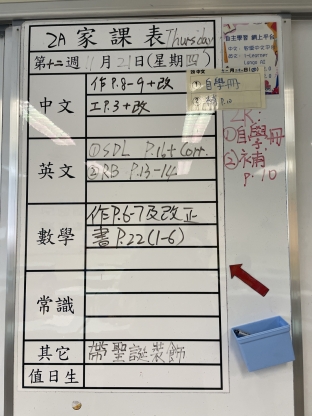 2A 家課表 Thursday
第十二週 11月21日(星期四)
中文
作P.8-9+改
工P.3+改
英文
①SPL P.16+Corr.
②RB P.13-14
數學
作P.6-7及改正
書P.22(1-6)
常識
其它
帶聖誕裝飾
值日生
自主學習 網上平台
①自學冊
①自學冊
P.10